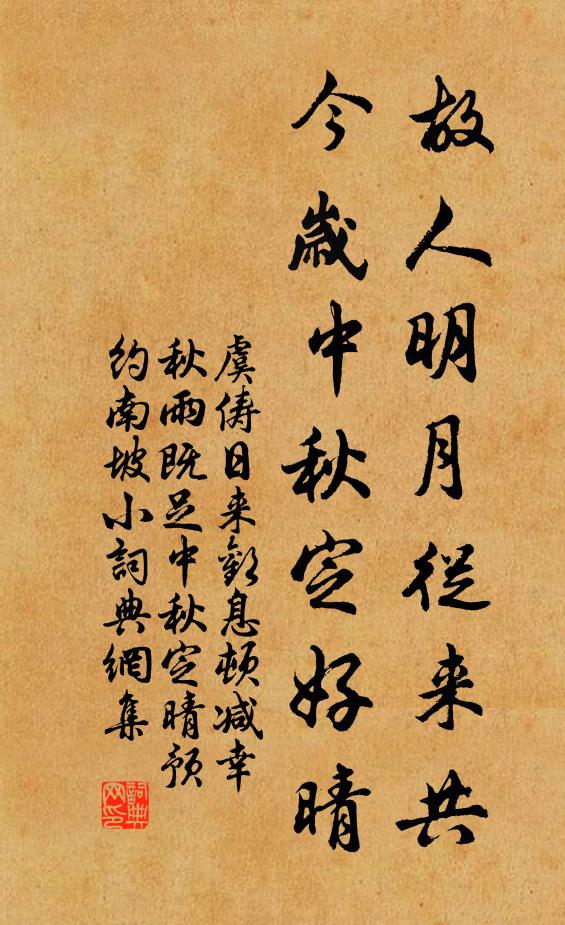 故人明月從来共
今歲中秋定好晴
虞儔日来息頓减幸
秋雨既足中秋定晴預
約南坡小詞典網集
詞典
网印